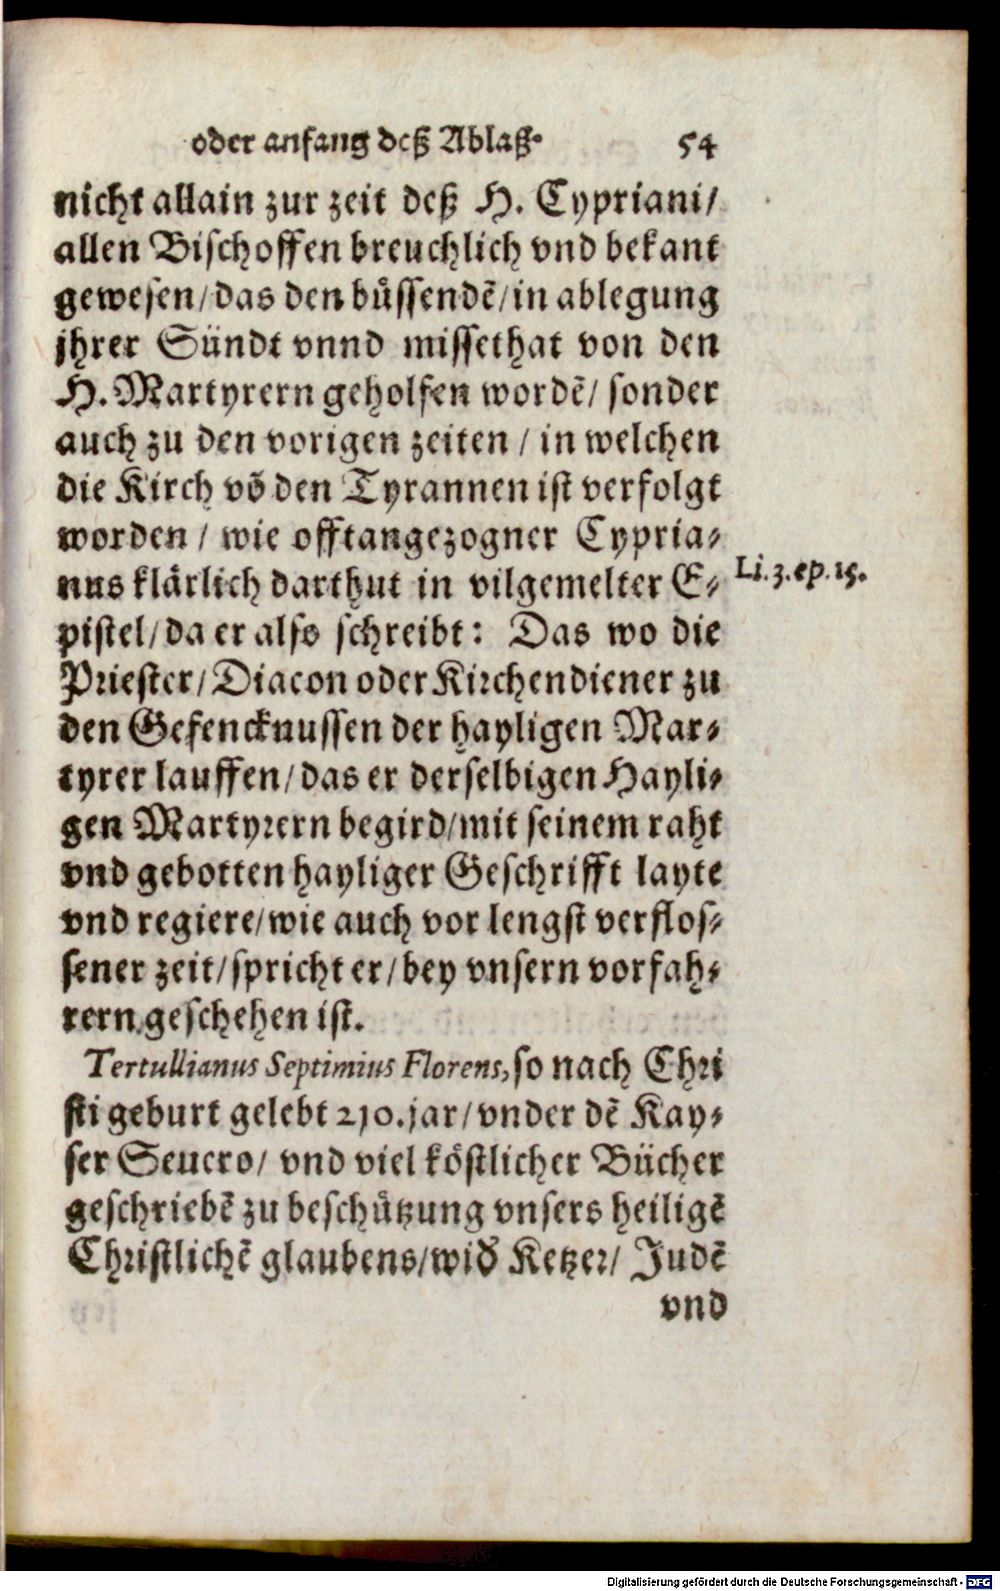 oder anfang deß Ablaß. 54
nicht allain zur zeit deß H. Cypriani/
allen Bischoffen breuchlich vnd bekant
gewesen/das den buͤssendẽ/in ablegung
jhrer Sündt vnnd missethat von den
H. Martyrern geholfen wordẽ/ sonder
auch zu den vorigen zeiten / in welchen
die Kirch võ den Tyrannen ist verfolgt
worden / wie offtangezogner Cypria-
nus klärlich darthut in vilgemelter E-
Li. 3. ep. 15.
pistel/da er also schreibt: Das wo die
Priester/Diacon oder Kirchendiener zu
den Gefencknussen der hayligen Mar-
tyrer lauffen/das er derselbigen Hayli-
gen Martyrern begird/mit seinem raht
vnd gebotten hayliger Geschrifft layte
vnd regiere/wie auch vor lengst verflos-
sener zeit/spricht er/bey vnsern vorfah-
rern geschehen ist.
Tertullianus Septimius Florens, so nach Chri
sti geburt gelebt 210. jar/vnder dẽ Kay-
ser Seuero/ vnd viel köstlicher Bücher
geschriebẽ zu beschuͤtzung vnsers heiligẽ
Christlichẽ glaubens/wid̕ Ketzer/ Judẽ
vnd
Digitalisierung gefördert durch die Deutsche Forschungsgemeinschaft - DFG